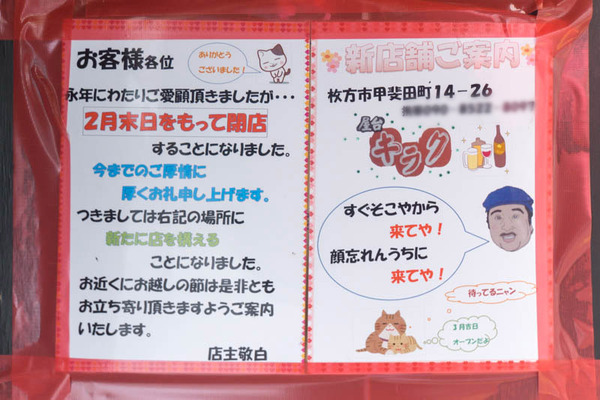 お客様各位
ありがとう
ございました！
永年にわたりご愛顧頂きましたが・・・
２月末日をもって閉店
することになりました。
今までのご厚情に
厚くお礼申し上げます。
つきましては右記の場所に
新たに店を構える
ことになりました。
お近くにお越しの節は是非とも
お立ち寄り頂きますようご案内
いたします。
店主敬白
新店舗ご案内
枚方市甲斐田町１４－２６
屋台
キラク
すぐそこやから
来てや！
顔忘れんうちに
来てや！
待ってるニャン
３月吉日
オープンだよ